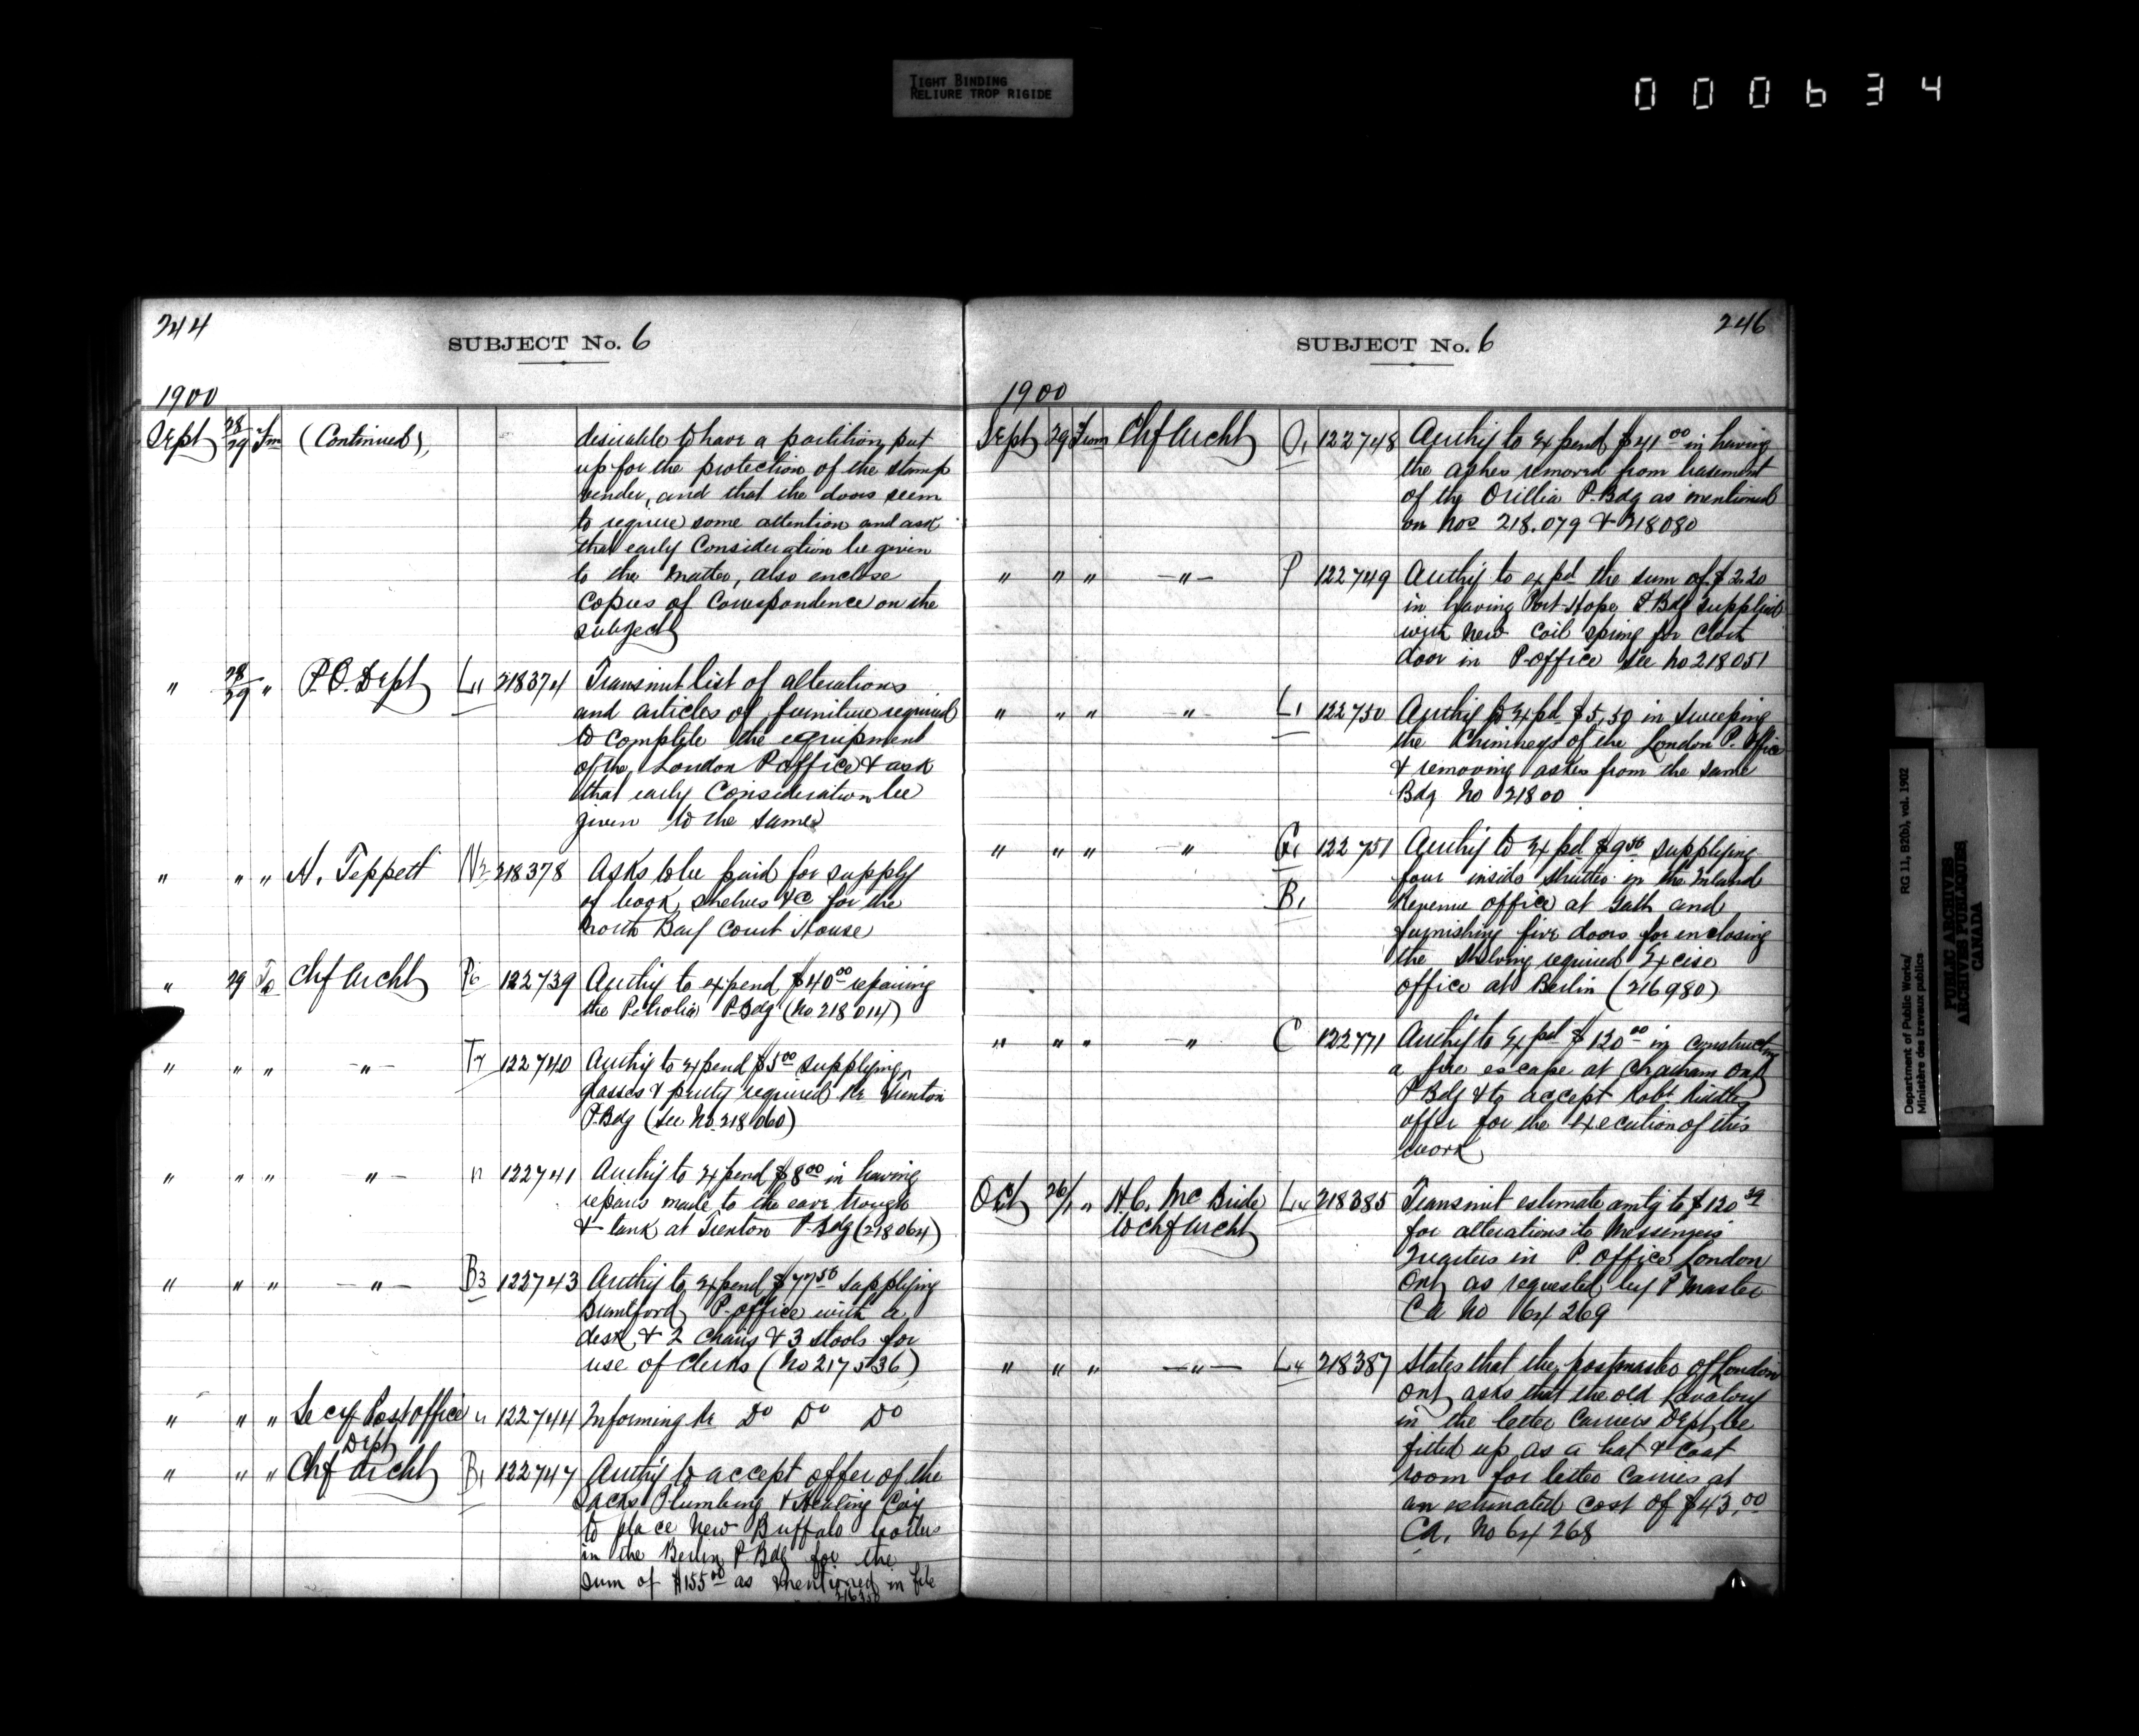 TIGHT BINDING
RELIURE TROP RIGIDE
000634
244
SUBJECT No. 6
1900
Sept 28/29 Fm (Continued)
desirable to have a partition put
up for the protection of the stamp
vender, and that the doors seem
to require some attention and ask
that early Consideration be given
to the matter, also enclose
Copies of Correspondence on the
subject
" 28/29 " P.O. Dept L11 218374 Transmit list of alterations
and articles of furniture required
to complete the equipment
of the London P office & ask
that early Consideration be
given to the same
" " " N. Teppett N2 218378 Asks to be paid for supply
of book shelves &c for the
North Bay Court House
" 29 To Chf Archt P6 122739 Authy to expend $40 00 repairing
the Petrolia P. Bdg (No 218 014)
" " " " T7 122740 Authy to expend $5 00 supplying
glasses & putty required re Trenton
P. Bdg (see No. 218 060)
" " " " " 122741 Authy to expend $8 00 in having
repairs made to the eave trough
& tank at Trenton P. Bdg (218064)
" " " " B3 122743 Authy to expend $77 50 supplying
Brantford P. office with a
desk & 2 chairs & 3 stools for
use of Clerks (No 217536)
" " " Secy Post office Dept " 122744 Informing re Do Do Do
" " " Chf Archt B1 122747 Authy to accept offer of the
Plumbing & Heating Coy
to place New Buffalo boilers
in the Berlin P. Bdg for the
sum of $155 00 as mentioned in file
216350
246
SUBJECT No. 6
1900
Sept 29 From Chf Archt O1 122748 Authy to expend $41 00 in having
the ashes removed from basement
of the Orillia P. Bdg as mentioned
on Nos 218.079 & 218080
" " " " P 122749 Authy to expd the sum of $2.20
in having Port Hope P Bdg supplied
with new coil spring for
door in P. office see No 218051
" " " " L1 122750 Authy to expd $5.50 in sweeping
the Chimneys of the London P. office
& removing ashes from the same
Bdg No 21800
" " " " G1 122751 Authy to expd $9 50 supplying
four inside shutters in the Inland
B1 Revenue office at Galt and
furnishing five doors for enclosing
the shelving required Excise
office at Berlin (216980)
" " " " C 122771 Authy to expd $120 00 in constructing
a fire escape at Chatham Ont
P Bdg & to accept Robt Riddle
offer for the execution of this
work
Oct 26/1 " H.C. McBride L4 218385 Transmit estimate amtg to $120 39
to chf Archt for alterations to Messengers
Quarters in P. office London
Ont as requested by P Master
Ca No 64269
" " " " L4 218387 States that the postmaster of London
Ont asks that the old Lavatory
in the letter Carriers Dept be
fitted up as a hat & coat
room for letter Carriers at
an estimated cost of $43.00
Ca. No 64268
Department of Public Works/
Ministère des travaux publics
RG 11, B2(b), vol. 1902
PUBLIC ARCHIVES
ARCHIVES PUBLIQUES
CANADA